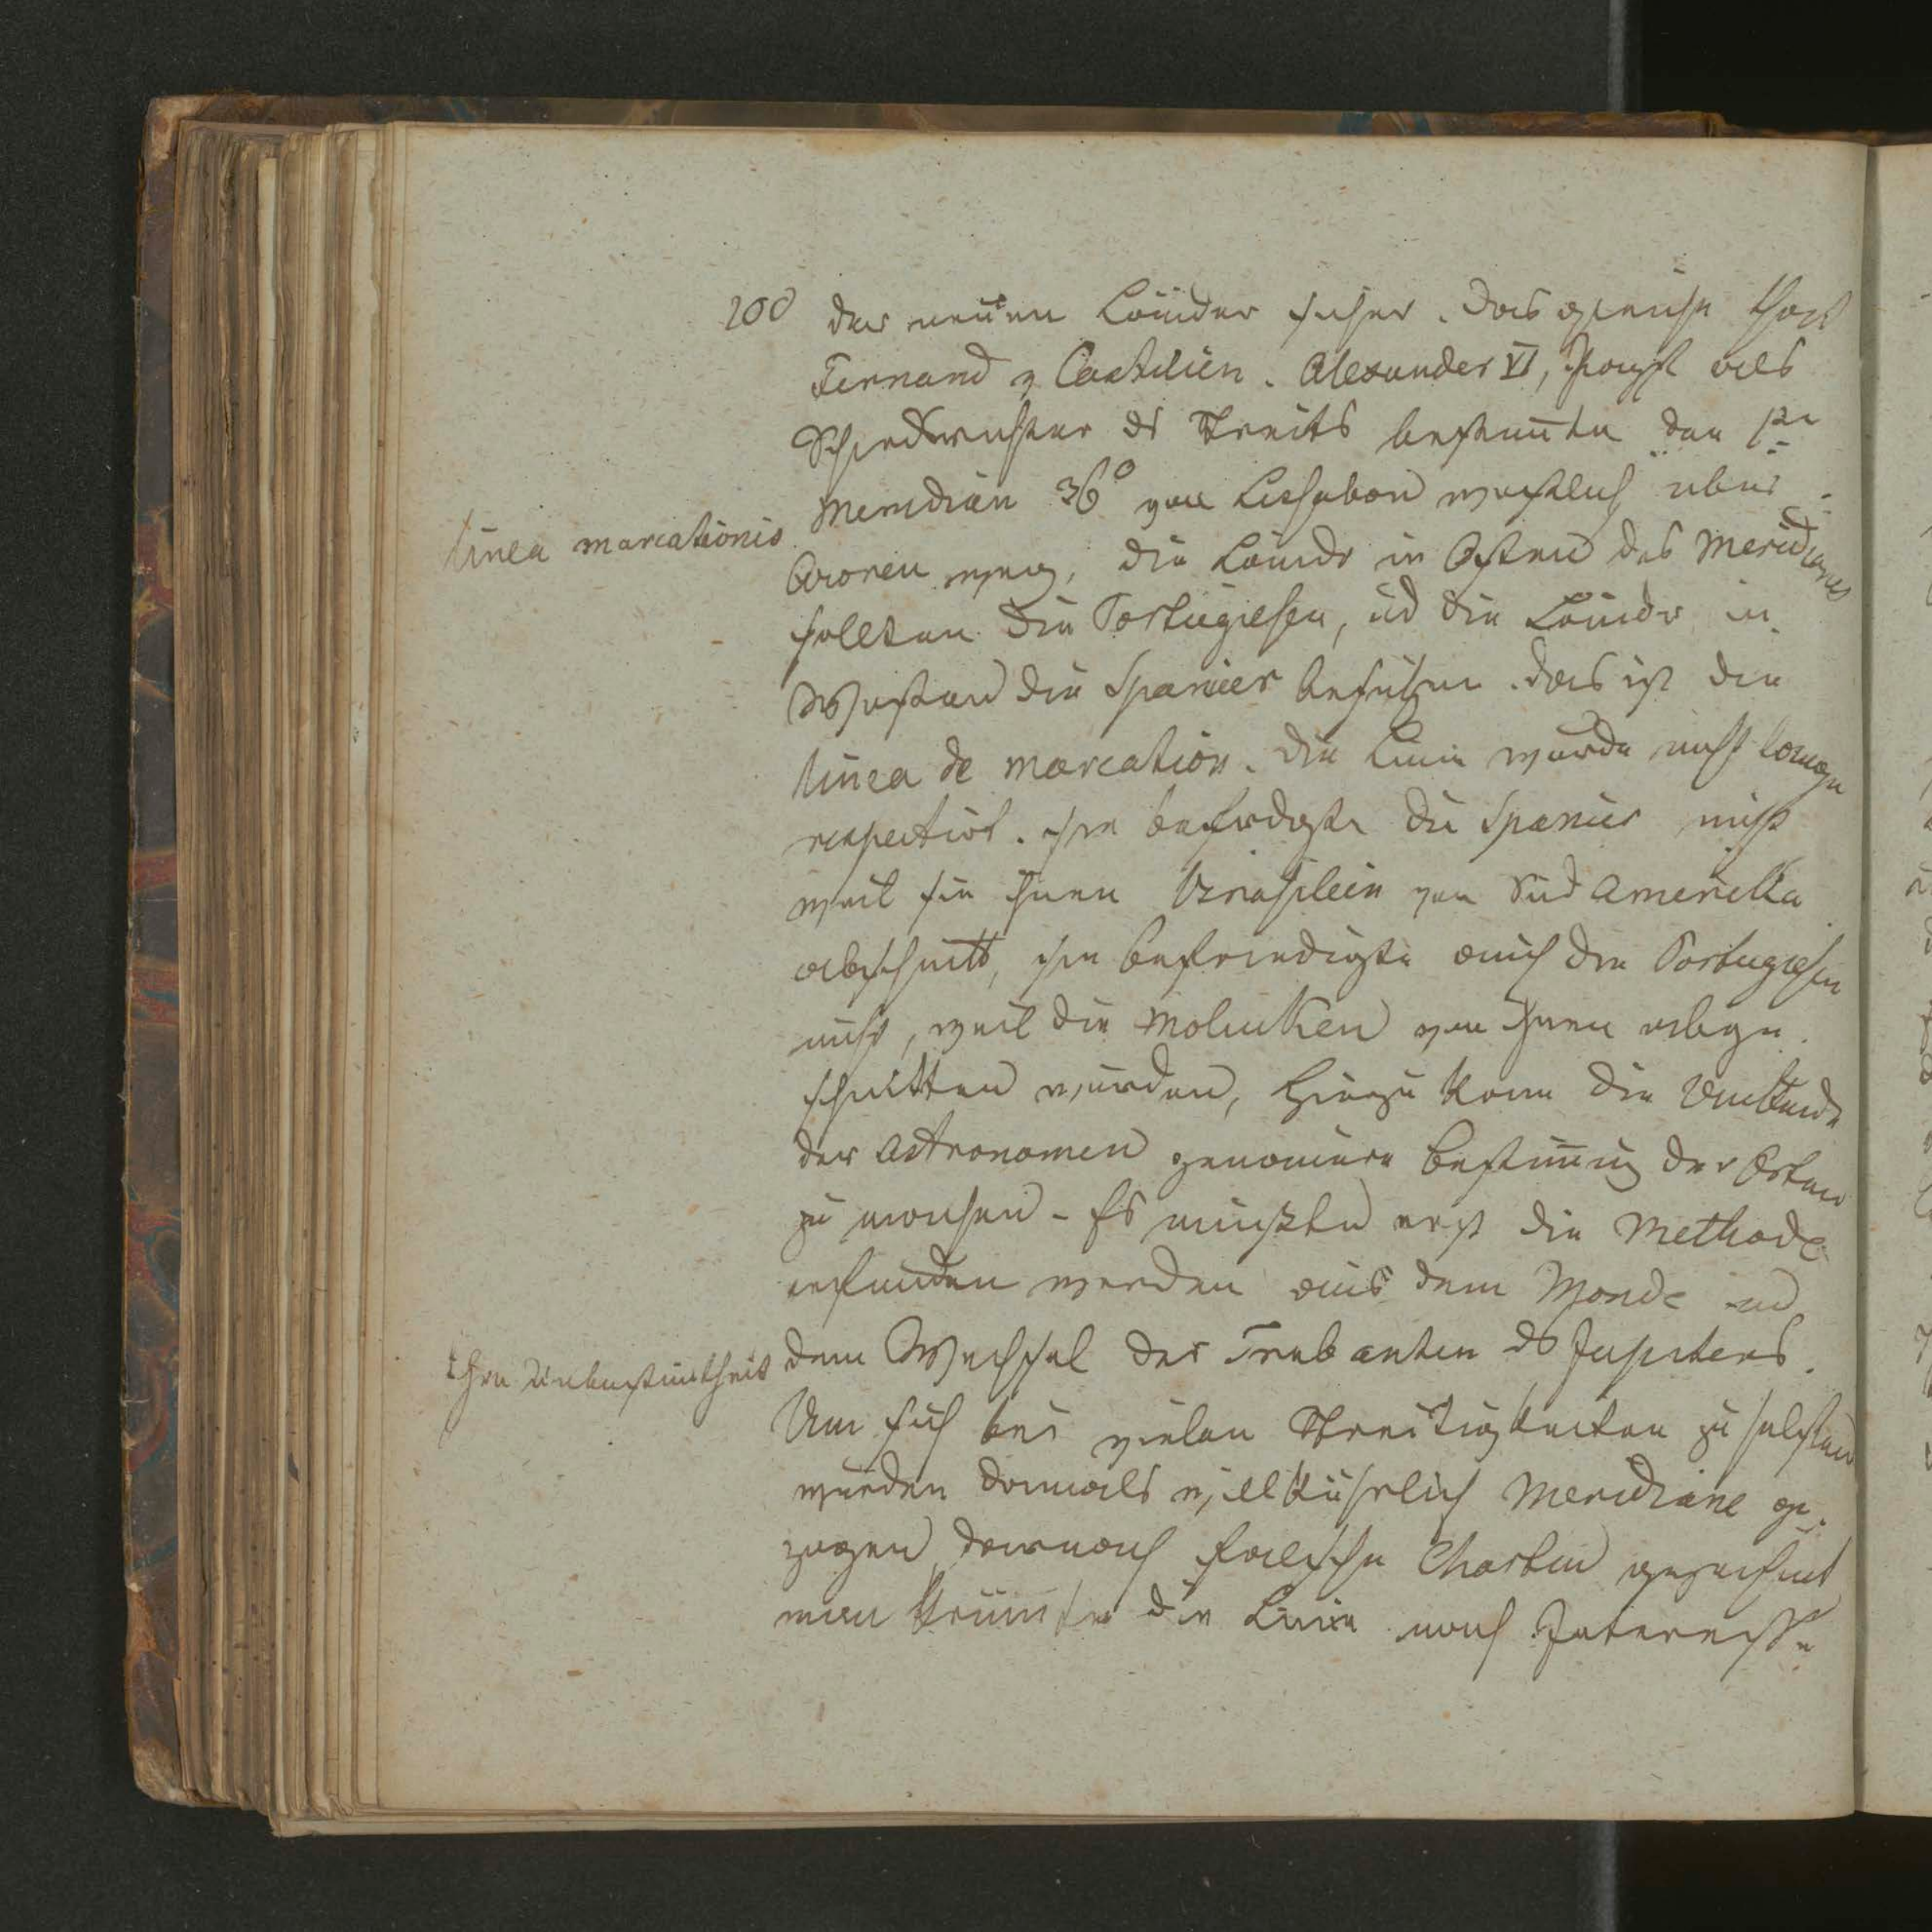 200
der neuen Länder sicher. Das gleiche that
Fernand v Castilien. Alexander VI, Papst als
Schiedsrichter ds Streits bestim̅te den 1ten
Meridian 36° von Lissabon westlich über
linea marcationis
Azoren weg, die Länder in Osten des Meridians
sollten die Portugiesen, ud die Länder in
Westen die Spanier besitzen. das ist die
linea de marcation. Die Linie wurde nicht lange
respectirt. sie befridigte die Spanier nicht
weil sie ihnen Brasilein von Süd Amerikka
abschnitt, sie befriedigte auch die Portugiesen
nicht, weil die Molukken von ihnen abge
schnitten wurden, Hiezu kam die
der Astronomen genauere Bestim̅ung der Orten
zu machen - Es mußten erst die Methode
erfunden werden aus dem Monde ud
Ihre Unbestim̅theit
dem Wechsel der Trabanten ds Jupiters.
Um sich bei vielen Streitigkeiten zu helfen
wurden damals willkührlich Meridiane ge
zogen darnach falsche Charten gezeichnet
man krüm̅te die Linie nach Interesse